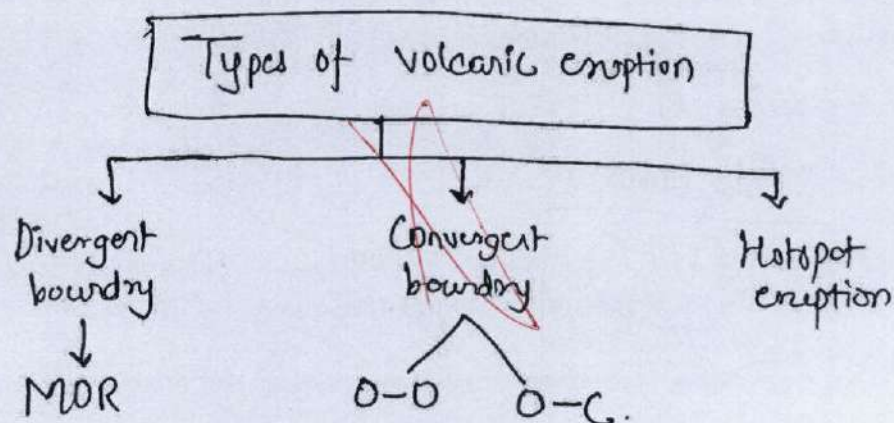 Types of volcanic eruption
Divergent
boundry
Convergent
boundry
Hotspot
eruption
MOR
O-O
O-C.